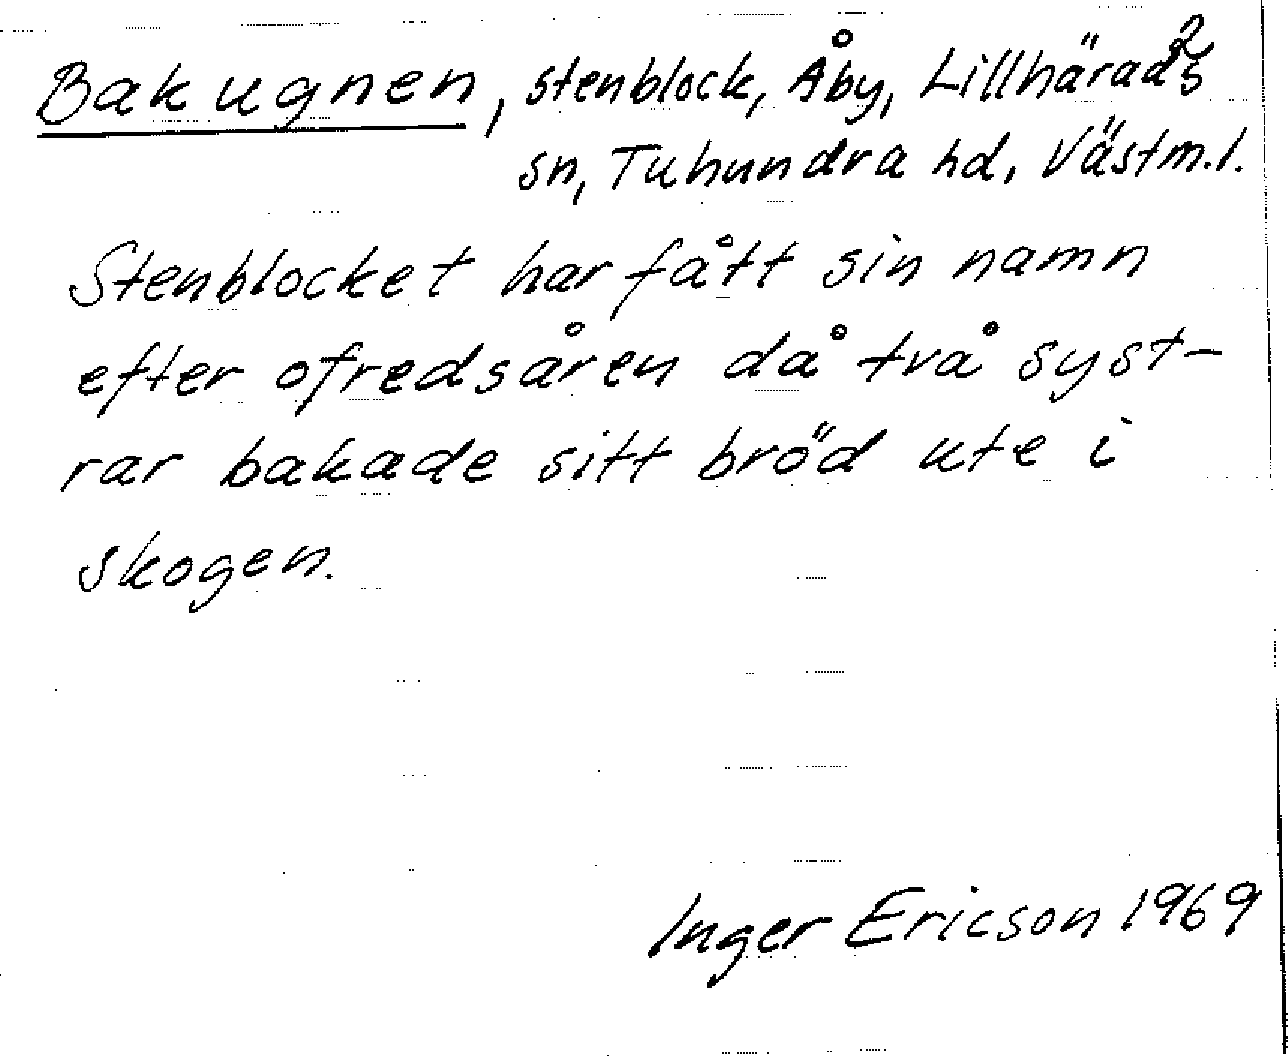 Bakugnen, stenblock, Åby, Lillhärads
2
sn, Tuhundra hd, Västm.l.
Stenblocket har fått sin namn
efter ofredsåren då två syst-
rar bakade sitt bröd ute i
skogen.
Inger Ericson 1969